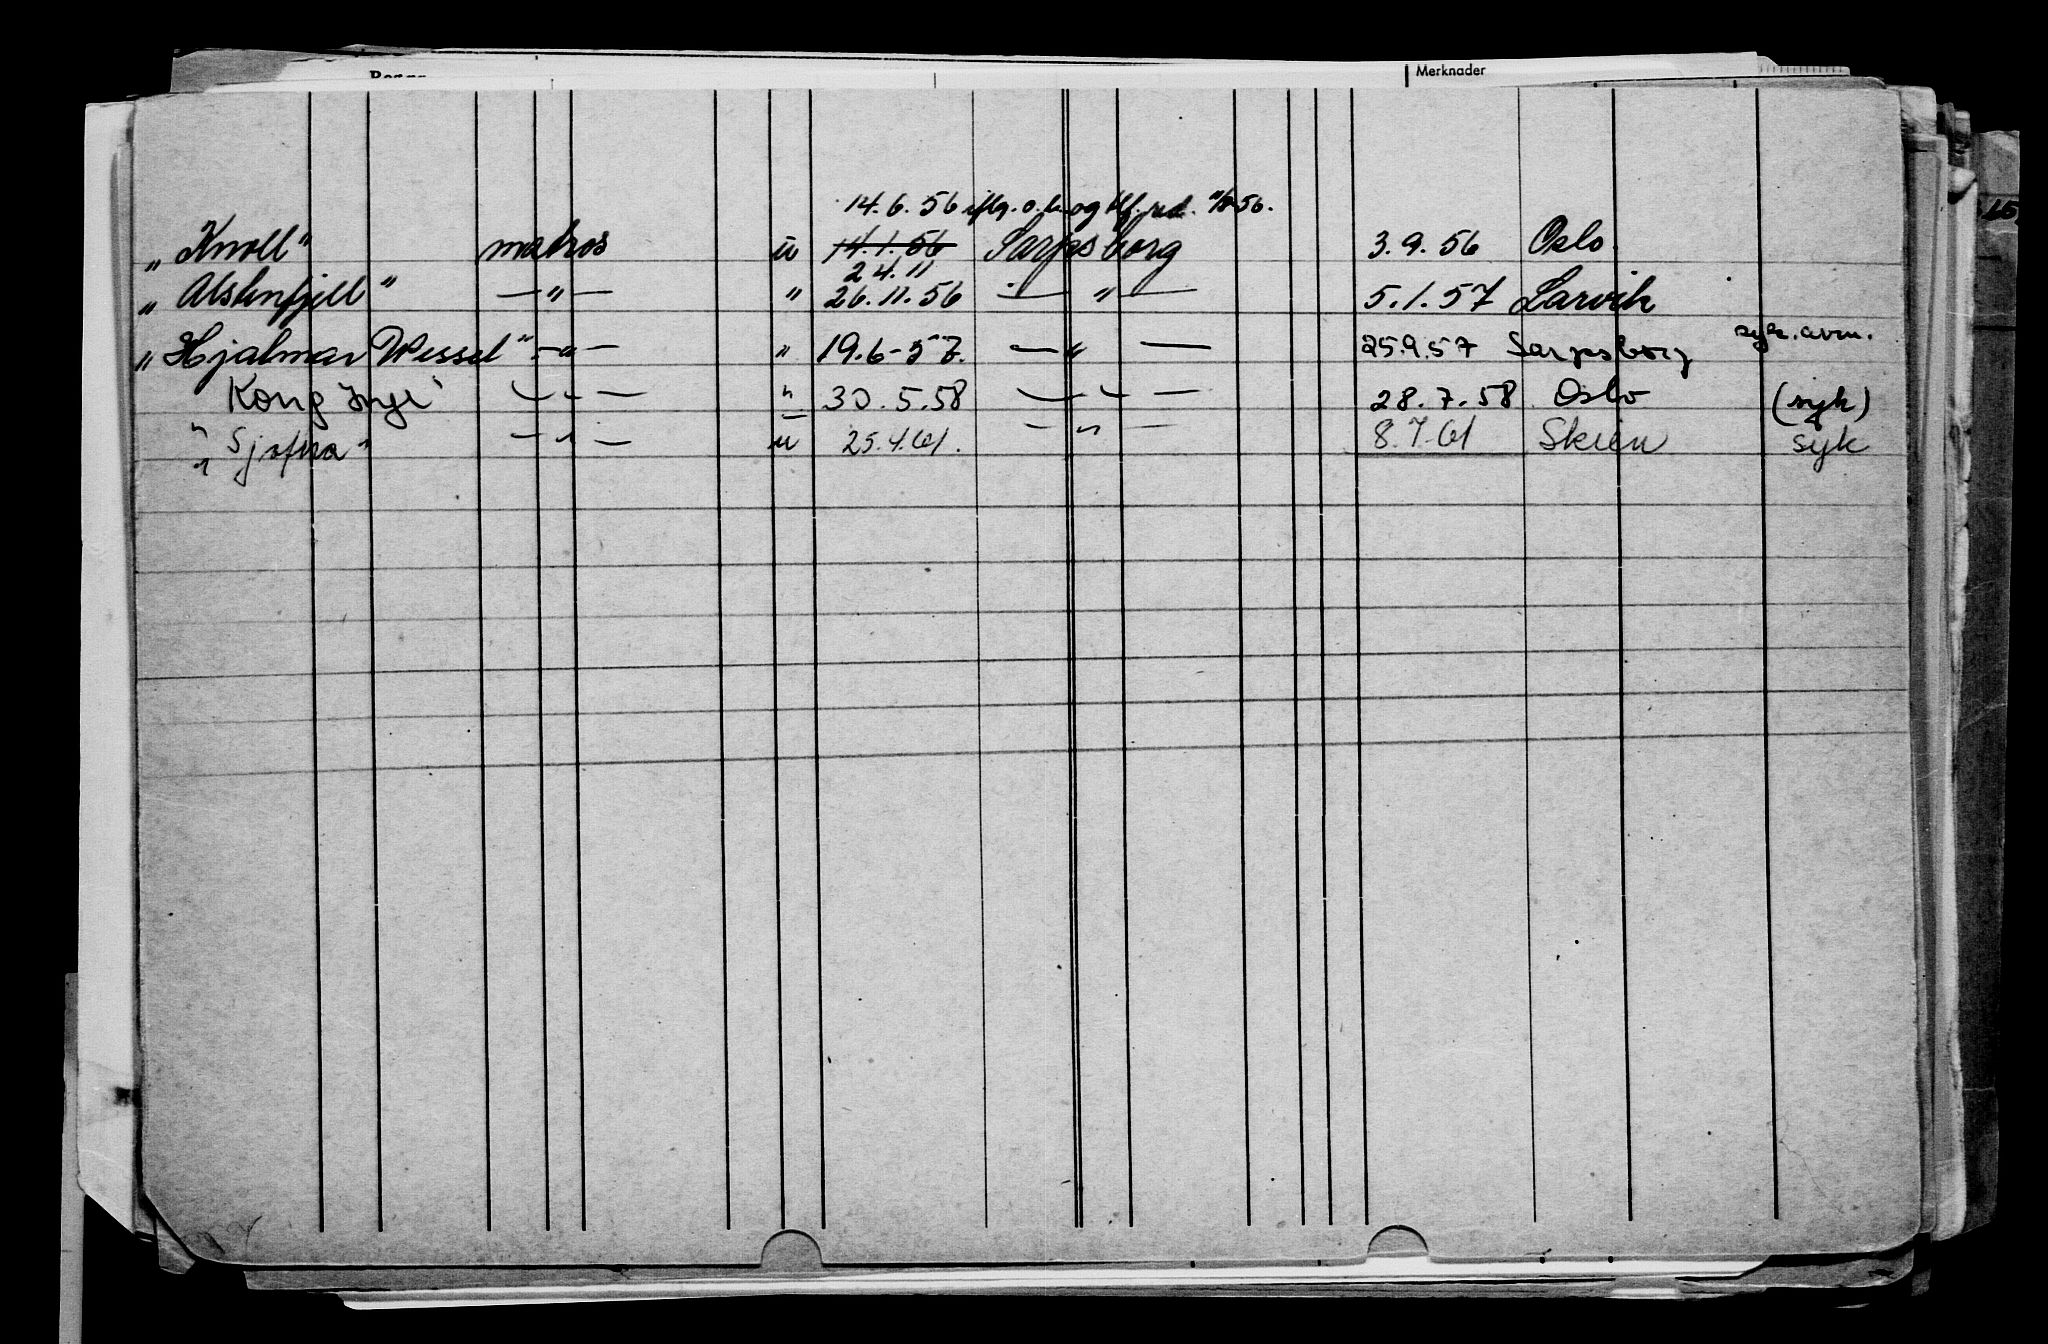 Merknader
14.6.56 iflg. o.b. og tlf. red. 56.
„Knoll" matros u 14.1.56 Sarpsborg 3.9.56 Oslo
24.11
„Alstenfjell" — " — " 26.11.56 — " — 5.1.57 Larvik
„Hjalmar Wessel" - " - " 19.6-57. — " — 25.9.57 Sarpsborg syk. avm.
Kong Inge" — " — " 30.5.58 — " — 28.7.58 Oslo (syk)
" Sjofna" — " — u 25.4.61. — " — 8.7.61 Skien syk